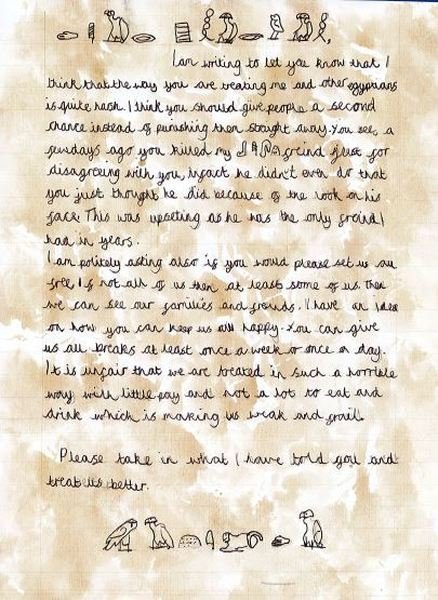 I am writing to let you know that I
think that the way you are treating me and other egyptians
is quite harsh. I think you should give people a second
chance instead of punishing them straight away. You see, a
fewdays ago you killed my freind just for
disagreeing with you, infact he didn't even do that
you just thought he did because of the look on his
face. This was upseting as he was the only freind I
had in years.
I am politely asking also if you would please set us all
free. If not all of us then at least some of us. Then
we can see our families and freinds. I have an idea
on how you can keep us all happy. You can give
us all breaks at least once a week or once a day.
It is unfair that we are treated in such a horrible
way with little pay and not a lot to eat and
drink which is making us weak and frail.
Please take in what I have told you and
treat us better.